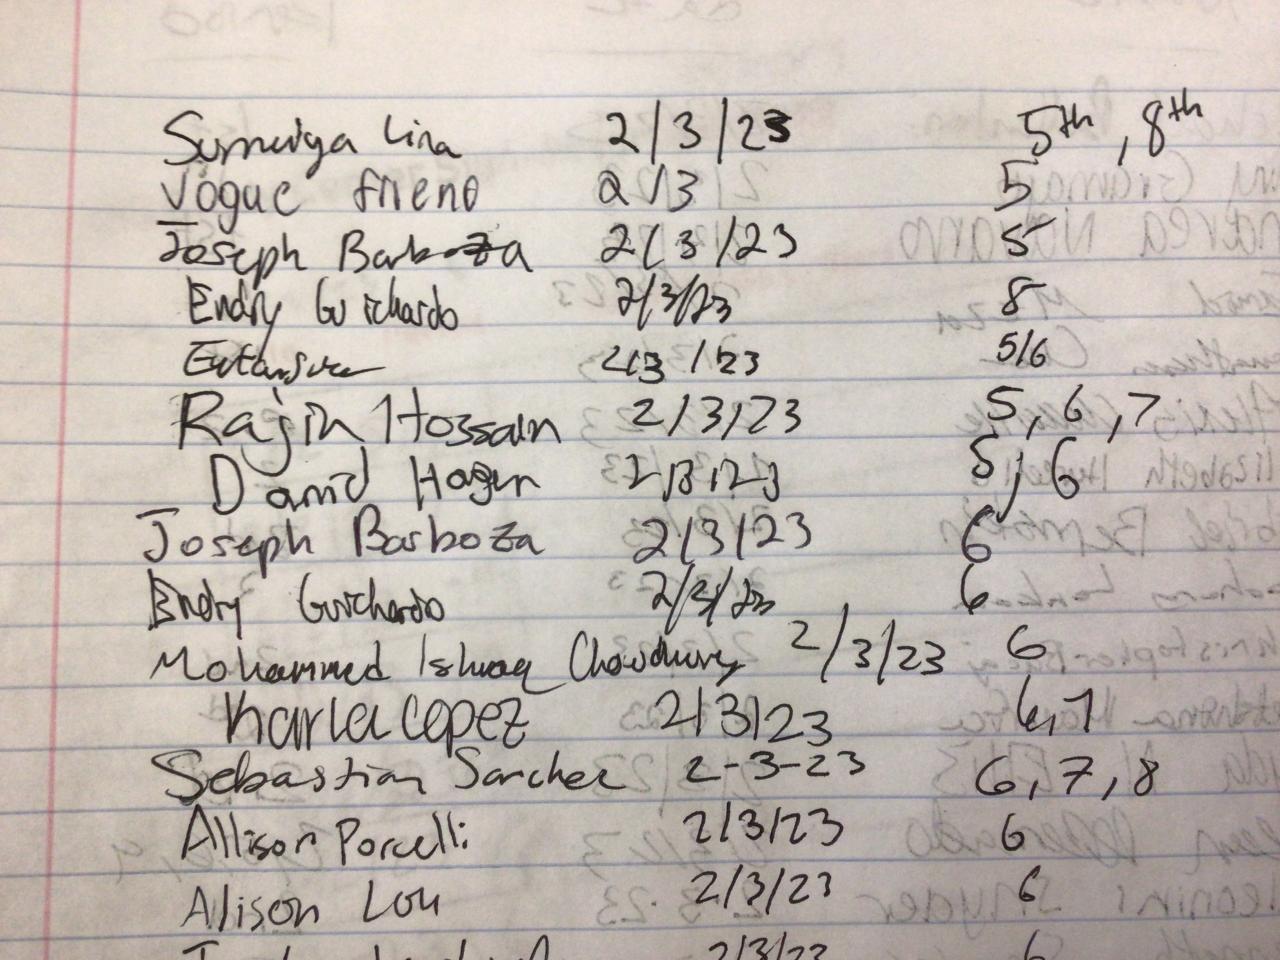 Sumaiya Lira 2/3/23 5th, 8th
Vogue Frieno 2/3 5
Joseph Barboza 2/3/23 5
Endry Guichardo 2/3/23 8
2/3/23 5/6
Rajin Hossain 2/3/23 5, 6, 7
David Hagen 2/3/23 5, 6
Joseph Barboza 2/3/23 6
Endry Guichardo 2/3/23 6
Mohammed Ishraq Chowdhury 2/3/23 6
Karla Lopez 2/3/23 6,7
Sebastian Sanchez 2-3-23 6, 7, 8
Allison Porcelli 2/3/23 6
Alison Lou 2/3/23 6
2/3/23 6